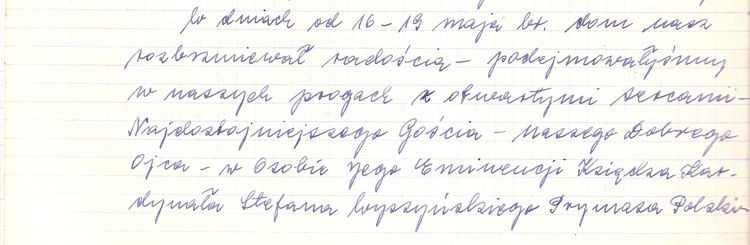 W dniach od 16-19 maja br. dom nasz
rozbrzmiewał radością – podejmowałyśmy
w naszych progach z otwartymi sercami –
Najdostojniejszego Gościa – naszego Dobrego
Ojca – w Osobie Jego Eminencji Księdza Kar-
dynała Stefana Wyszyńskiego Prymasa Polski